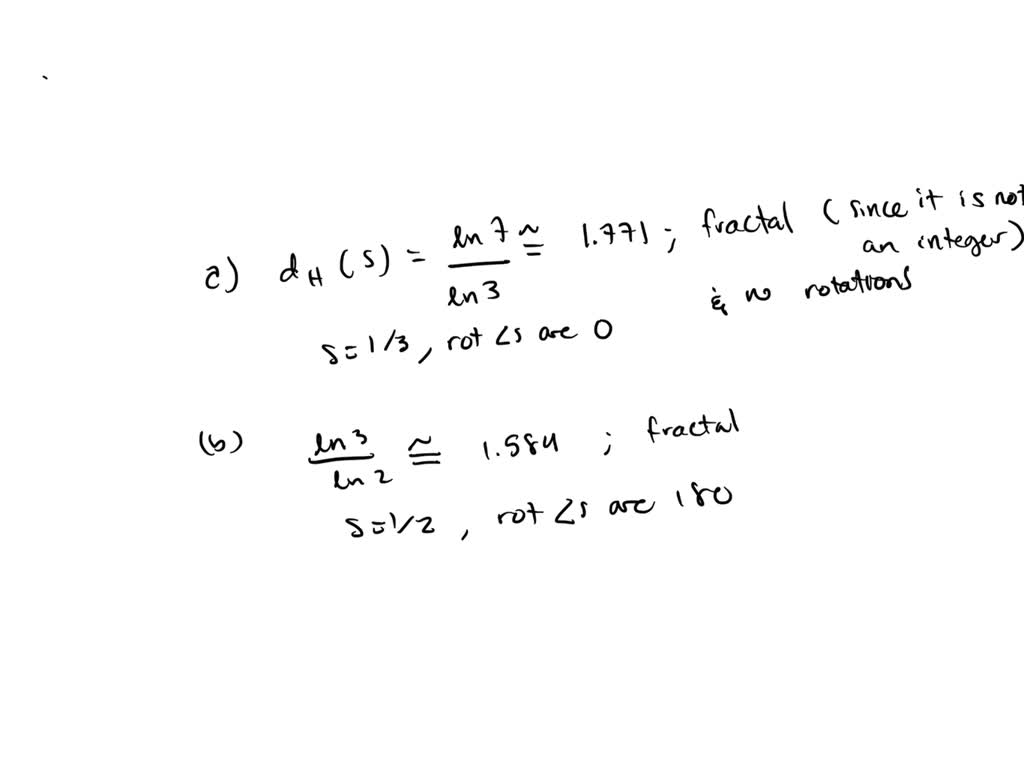 a) dH (s) = ln 7 / ln 3 ≅ 1.771 ; fractal (since it is not
an integer)
& no rotations
s = 1/3 , rot ∠s are 0
(b) ln 3 / ln 2 ≅ 1.584 ; fractal
s = 1/2 , rot ∠s are 180